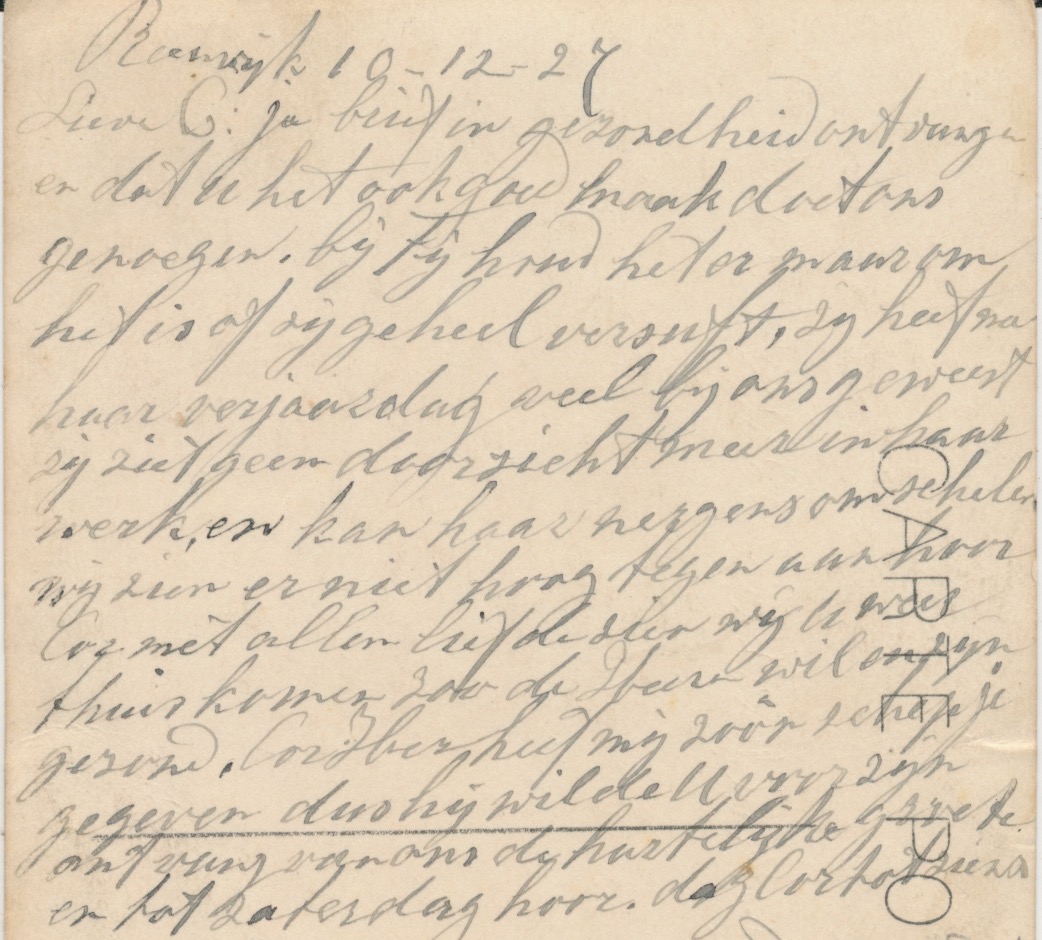 10-12-27
Lieve C: je brief in gezondheid ontvange
en dat U het ook goed maak doet ons
genoegen. bij Fij houd het er maar om
het is of zij geheel versuft, zij heef na
haar verjaarsdag veel bij ons geweest
zij ziet geen doorzicht meer in haar
werk, en kan haar nergens om schelen
wij zien er niet hoog tegen aan hoor
Cor met allen liefde zien wij U weer
thuis komen zoo de Heere wil en zijn
gezond. Cor heef mij zoo'n schopje
gegeven dus hij wilde U voor zijn
ontvang van ons de hartelijke groete
en tot Zaterdag hoor. dag Cor tot ziens
CARTE PO